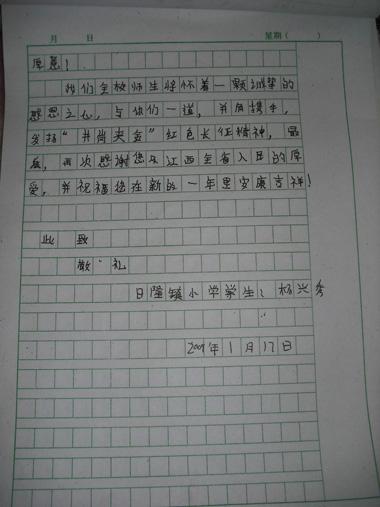 月 日 星期( )
厚意!
我们全校师生将怀着一颗诚挚的
感恩之心,与你们一道,并肩携手,
发扬“井尚夹金”红色长征精神,最
后,再次感谢您及江西全省人民的厚
爱,并祝福您在新的一年里安康吉祥!
此致
敬礼
日隆镇小学学生:杨兴秀
2009年1月17日